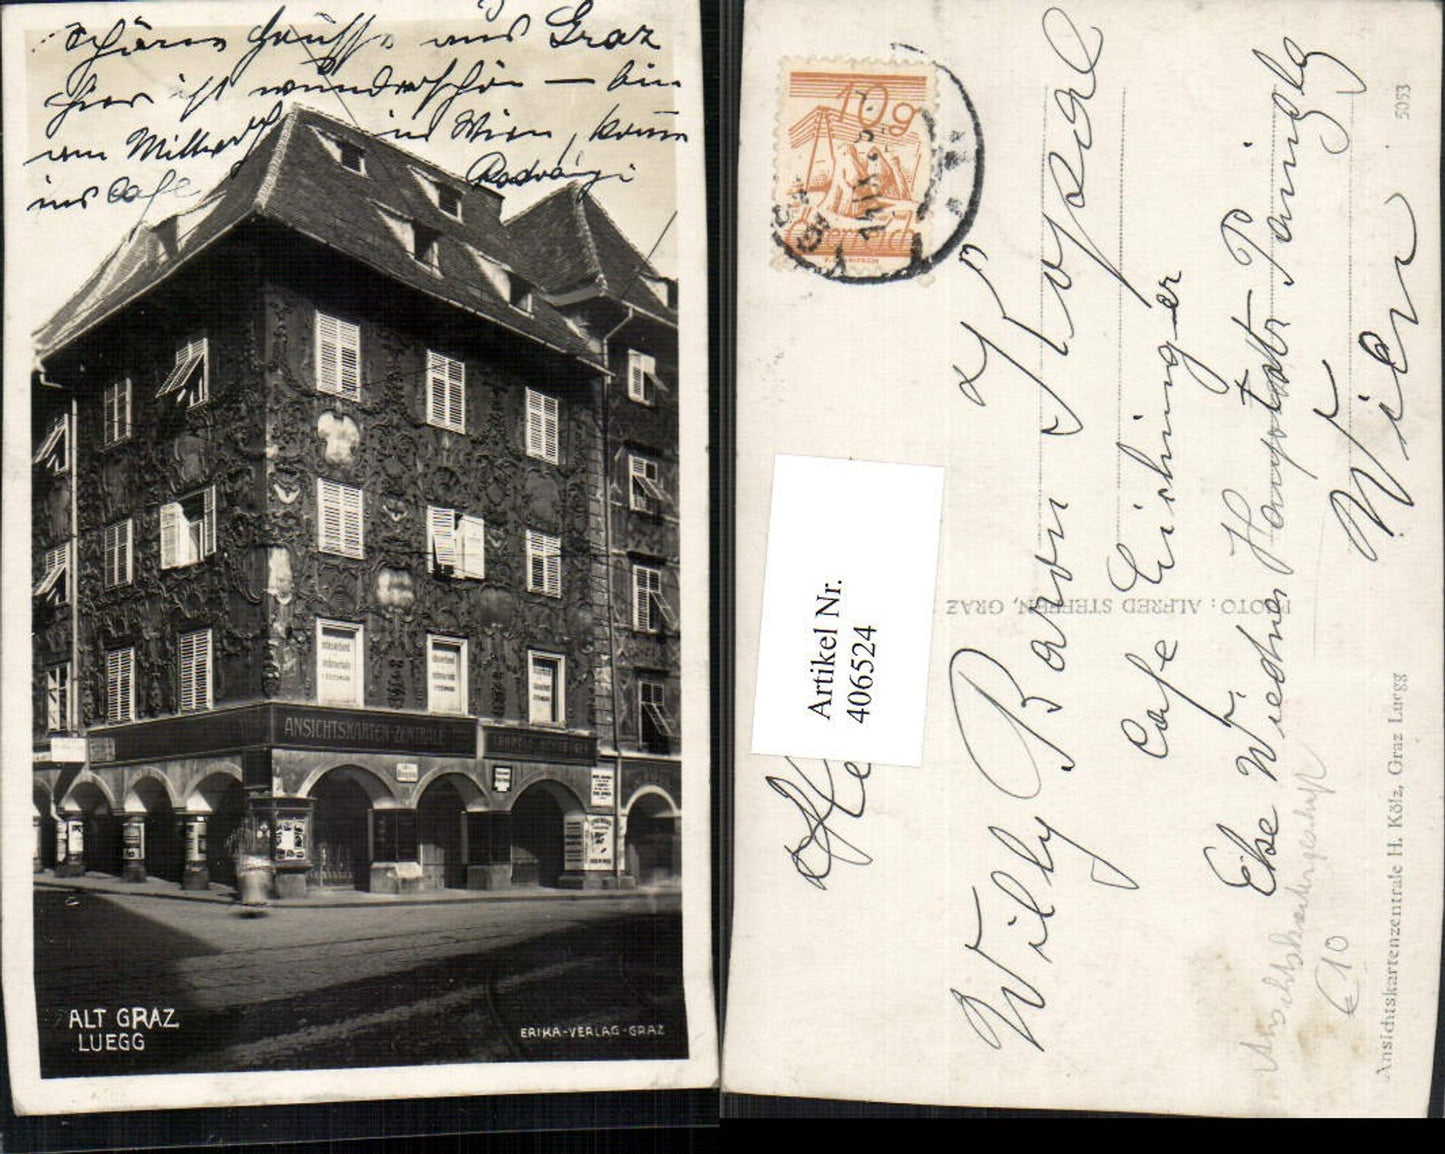 schöne Grüsse aus Graz
hier ist wunderschön — bin
am Mittwoch in Wien, komm
ins Cafe
ANSICHTSKARTEN-ZENTRALE
ALT GRAZ
LUEGG
ERIKA-VERLAG-GRAZ
10g
Österreich
Artikel Nr.
406524
Willy Baron Kopal
Cafe Eichinger
Ecke Wiedner Hauptstr-Paniglg
Wien
PHOTO: ALFRED STEFFEN, GRAZ
Ansichtskartengeschäft
€ 10
Ansichtskartenzentrale H. Kölz, Graz Luegg
5053